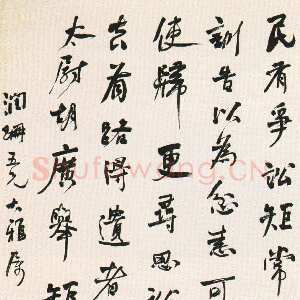 民有爭訟矩常
訓告以為忿恚可
使歸更尋思訟
去者路得遺者
太尉胡廣舉矩
潤珊五兄大雅屬